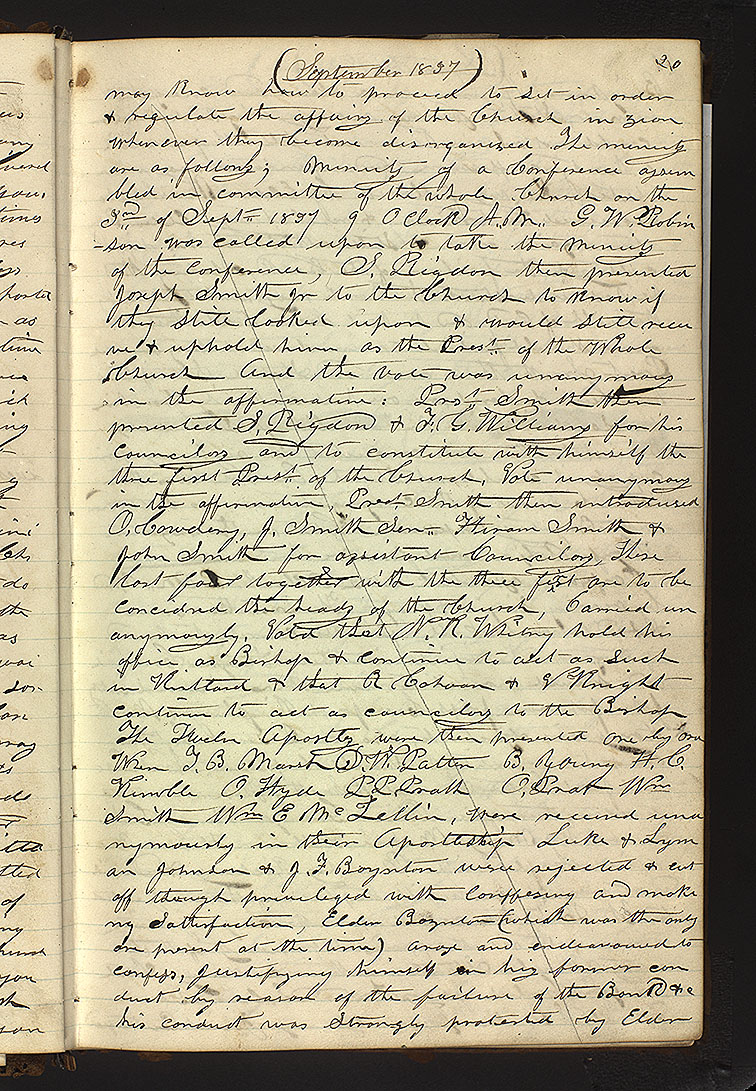 (September 1837) 20
may know how to proceed to set in order
& regulate the affairs of the Church in zion
whenever they become disorganized The minuits
are as follows; Minuits of a Conference assem
bled in committee of the whole Church on the
3rd of Sept— 1837 9 OClock A.M. G. W. Robin
-son was called upon to take the minuits
of the conference, S. Rigdon then presented
Joseph Smith Jr to the Church to know if
they still looked upon & would still recei
ve & uphold him as the Prest. of the Whole
Church And the vote was unanymous
in the affirmative: Prest Smith then
presented S. Rigdon & F. G. Williams for his
councilors and to constitute with himself the
three first Prest. of the Church. Vote unanymous
in the affirmative, Prest Smith then introduced
O. Cowdery, J. Smith Sen— Hiram Smith &
John Smith for assistant Councilors, These
last four together with the three first are to be
concidred the heads of the Church, Carried un
anymously. Voted that N. K. Whitney hold his
office as Bishop & continue to act as such
in Kirtland & that R Cahoon & V Knight
continue to act as councilors to the Bishop
The Twelve Apostles were then presented one by one
When T. B. Marsh D. W. Patten B. Young H. C.
Kimble O. Hyde P. P. Pratt O. Pratt Wm
Smith Wm E McLellin, were received una
nymously in their Apostleship Luke & Lym
an Johnson & J. F. Boynton were rejected & cut
off though privileged with confessing and maki
ng Satisfaction, Elder Boynton (which was the only
one present at the time) arose and endeavoured to
confess, Justifying himself in his former con
duct by reason of the failure of the Bank &c
his conduct was strongly protested by Elder